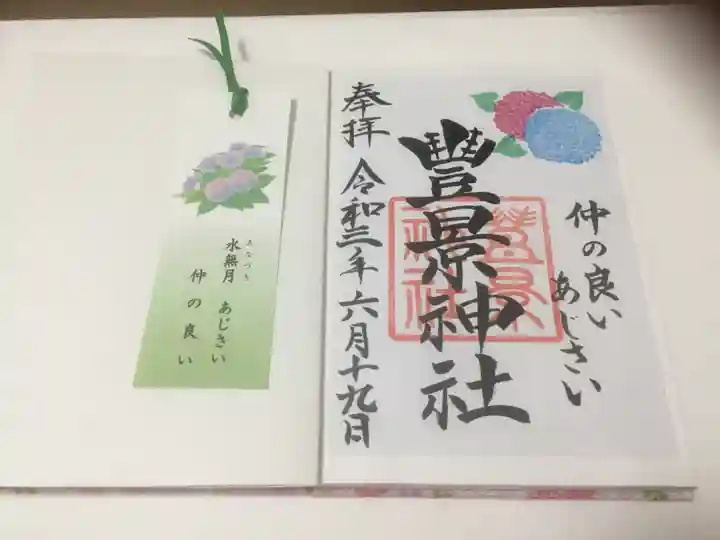 仲の良い
あじさい
豐景神社
奉拝 令和三年六月十九日
豐景
神社
水無月 あじさい
みなづき
仲の良い